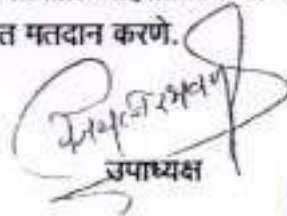 त मतदान करणे.
उपाध्यक्ष